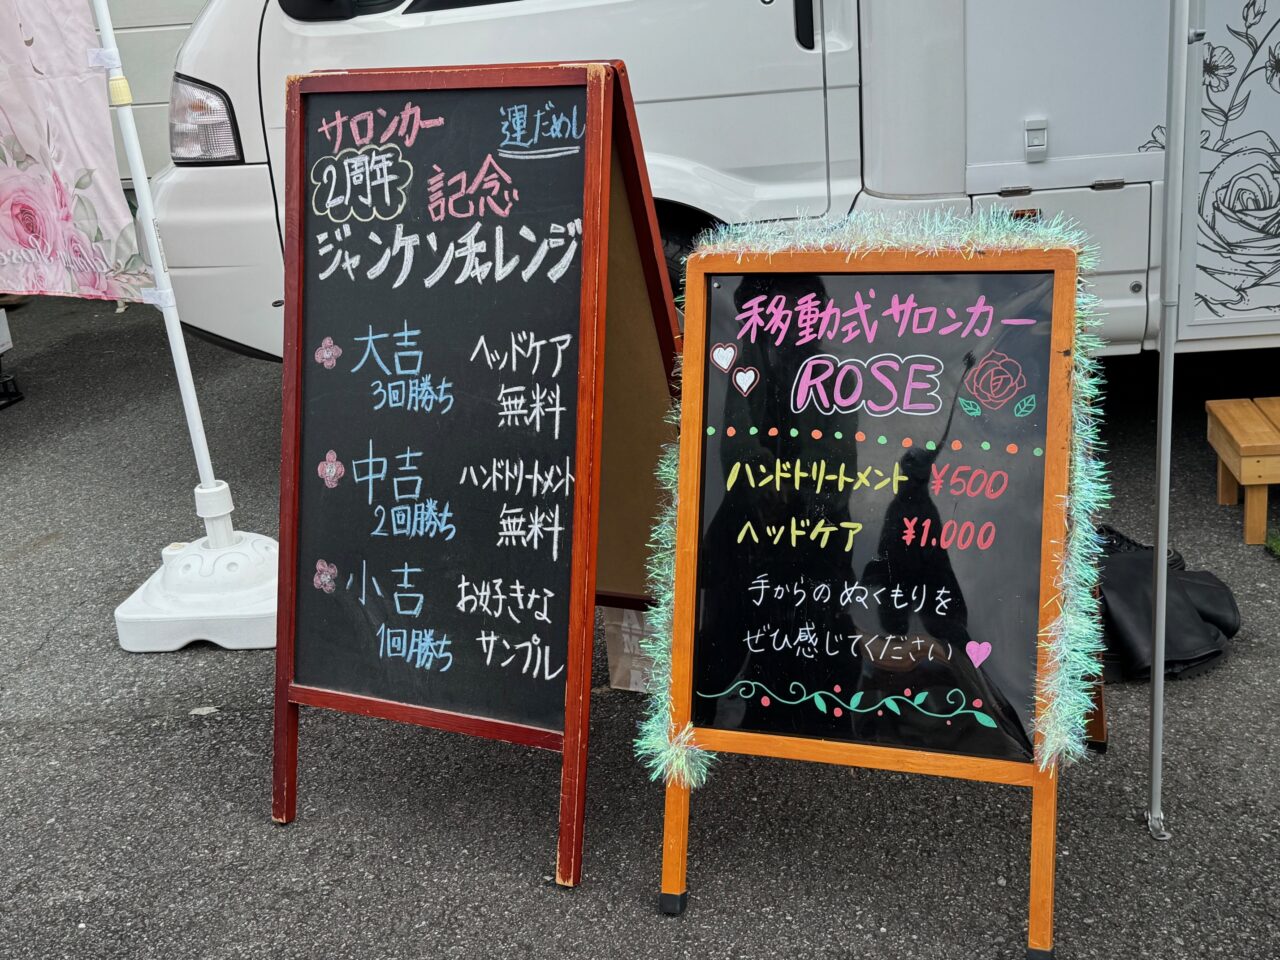 サロンカー
運だめし
2周年
記念
ジャンケンチャレンジ
大吉 ヘッドケア
3回勝ち 無料
中吉 ハンドトリートメント
2回勝ち 無料
小吉 お好きな
1回勝ち サンプル
移動式サロンカー
ROSE
ハンドトリートメント ¥500
ヘッドケア ¥1.000
手からのぬくもりを
ぜひ感じてください